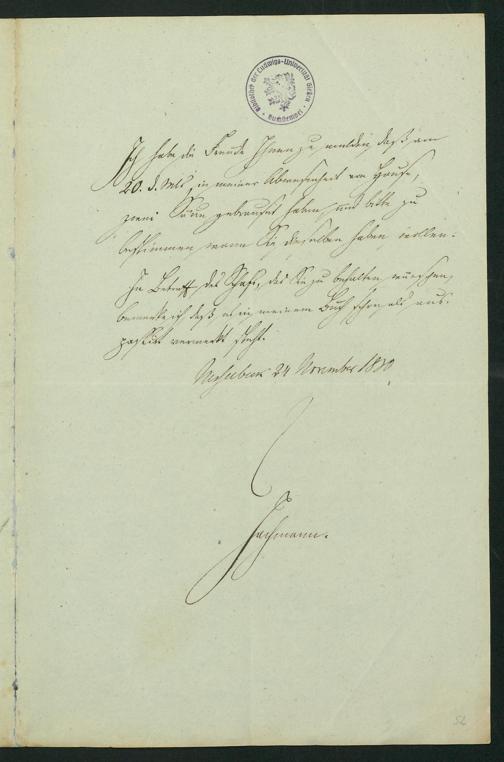 Bibliothek der Ludwigs-Universität Gießen
Ich habe die Freude Ihnen zu melden, daß am
20. d. Mts, in meiner Abwesenheit von Hause,
zwei Säue gebrauset haben, und bitte zu
bestimmen, wann Sie dieselben haben wollen.
In Betreff des Schafs, das Sie zu behalten wünschen,
bemerke ich daß es in meinem Buch schon als aus-
vermerkt steht.
24 November 1830